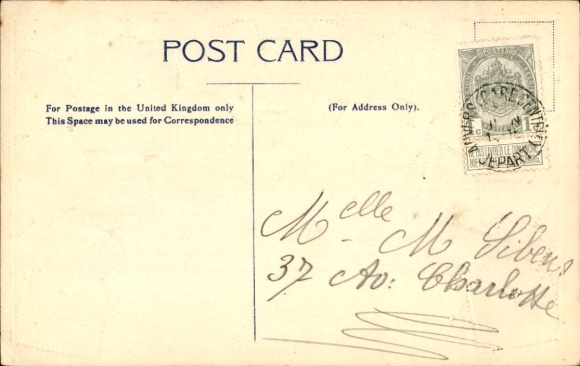 POST CARD
For Postage in the United Kingdom only
This Space may be used for Correspondence
(For Address Only).
POSTES
1
ANVERS (GARE CENTRALE)
DEPART
Melle M Sibens
37 Av: Charlotte